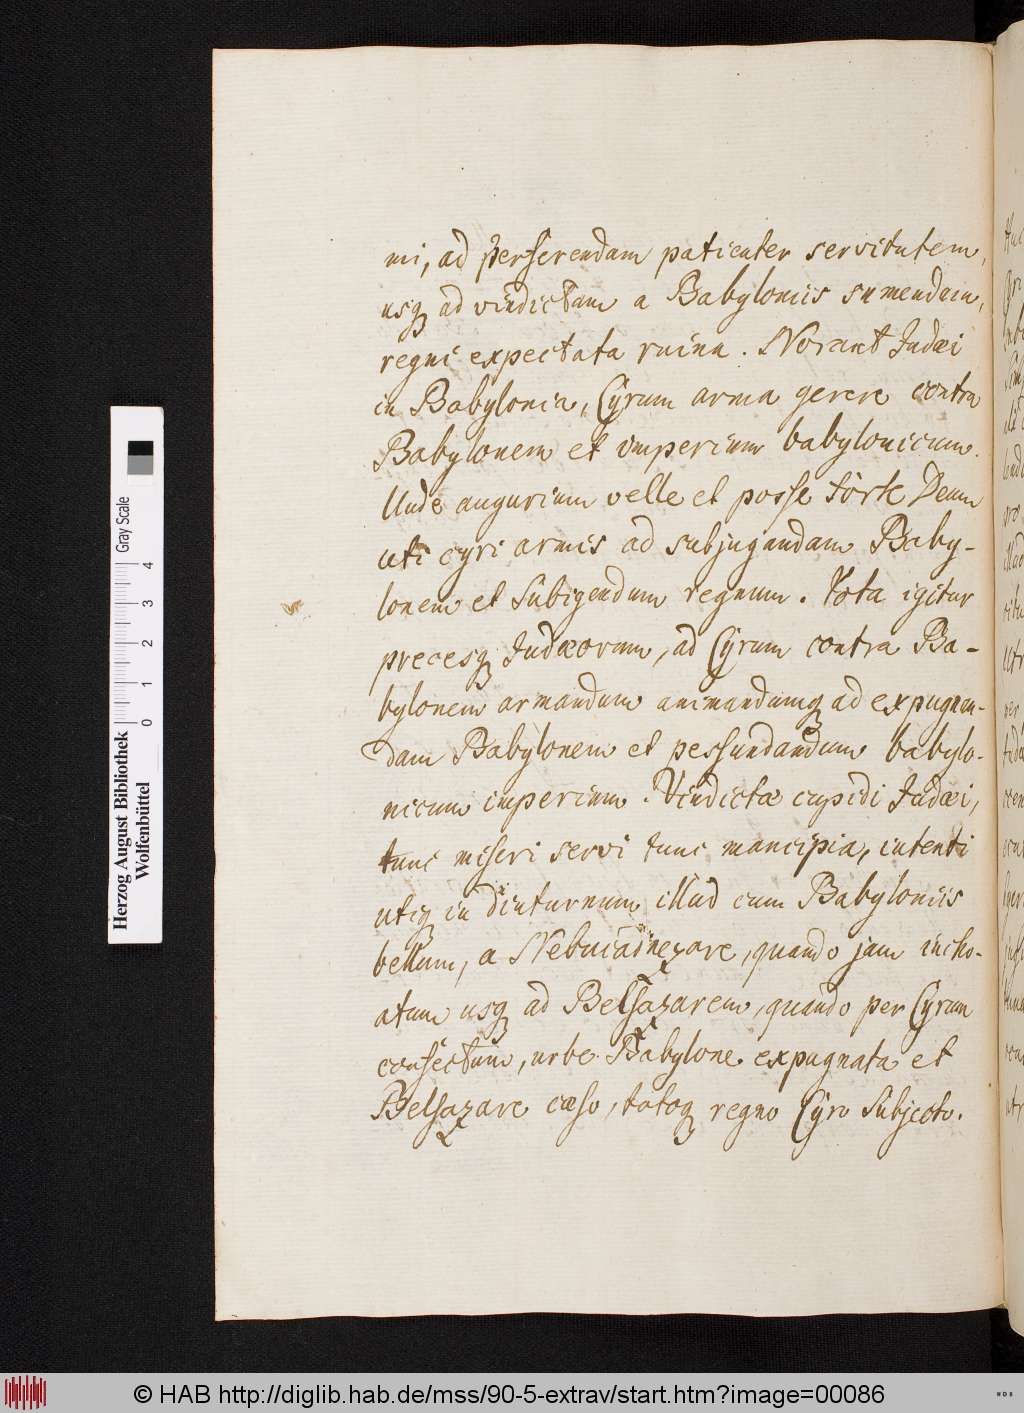 mi, ad perferendam patienter servitutem,
usq ad vindictam a Babyloniis sumendam,
regni expectata ruina. Norant Judæi
in Babylonia, Cyrum arma gerere contra
Babylonem et imperium babylonicum.
Unde augurium velle et posse forte Deum
uti cyri armis ad subjugandam Baby-
lonem et subigendum regnum. Vota igitur
precesq Judæorum, ad Cyrum contra Ba-
bylonem armandum animandumq ad expugnan-
dam Babylonem et pessundandum babylo-
nicum imperium. Vindictæ cupidi Judæi,
tunc miseri servi tunc mancipia, intenti
utiq in diuturnum illud cum Babyloniis
bellum, a Nebucadnezare, quando jam incho-
atum usq ad Belsazarem, quando per Cyrum
confectum, urbe Babylone expugnata et
Belsazare cæso, totoq regno Cyro subjecto.
Herzog August Bibliothek
Wolfenbüttel
0 1 2 3 4
Gray Scale
© HAB http://diglib.hab.de/mss/90-5-extrav/start.htm?image=00086